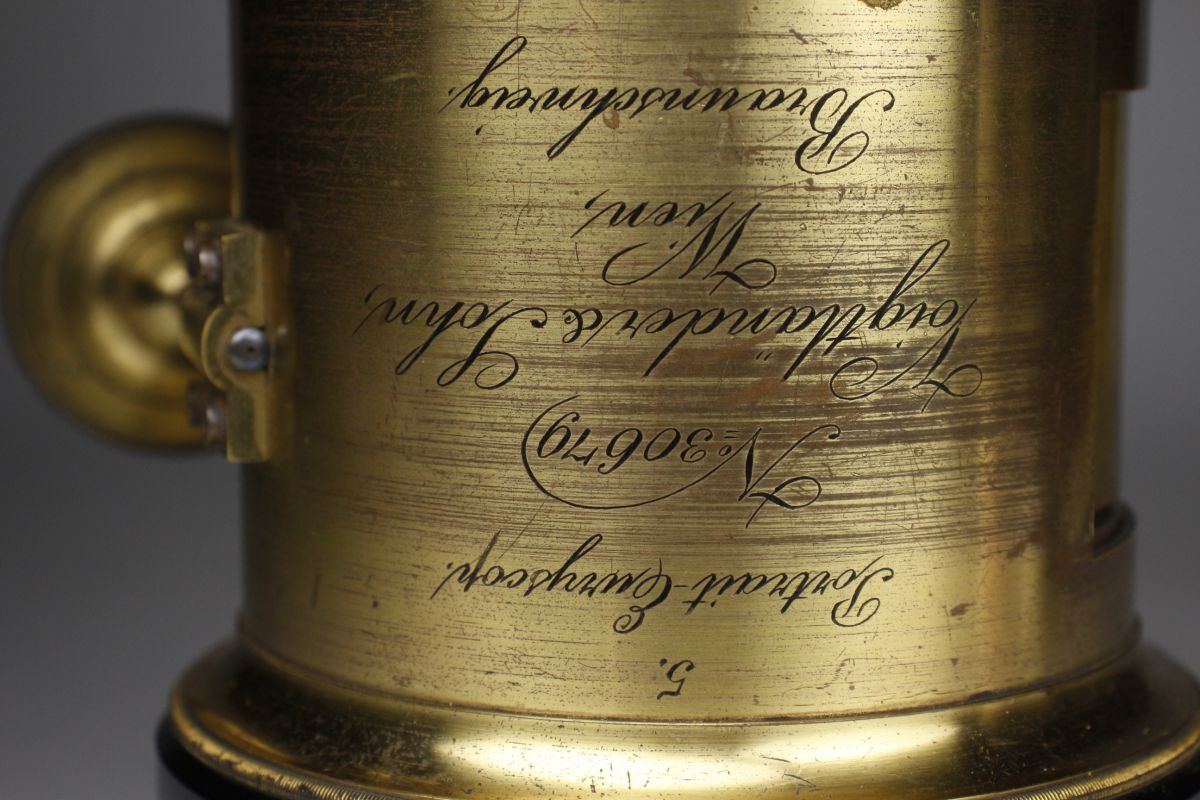 5.
Portrait-Euryscop.
No 30679
Voigtländer & Sohn,
Wien,
Braunschweig.